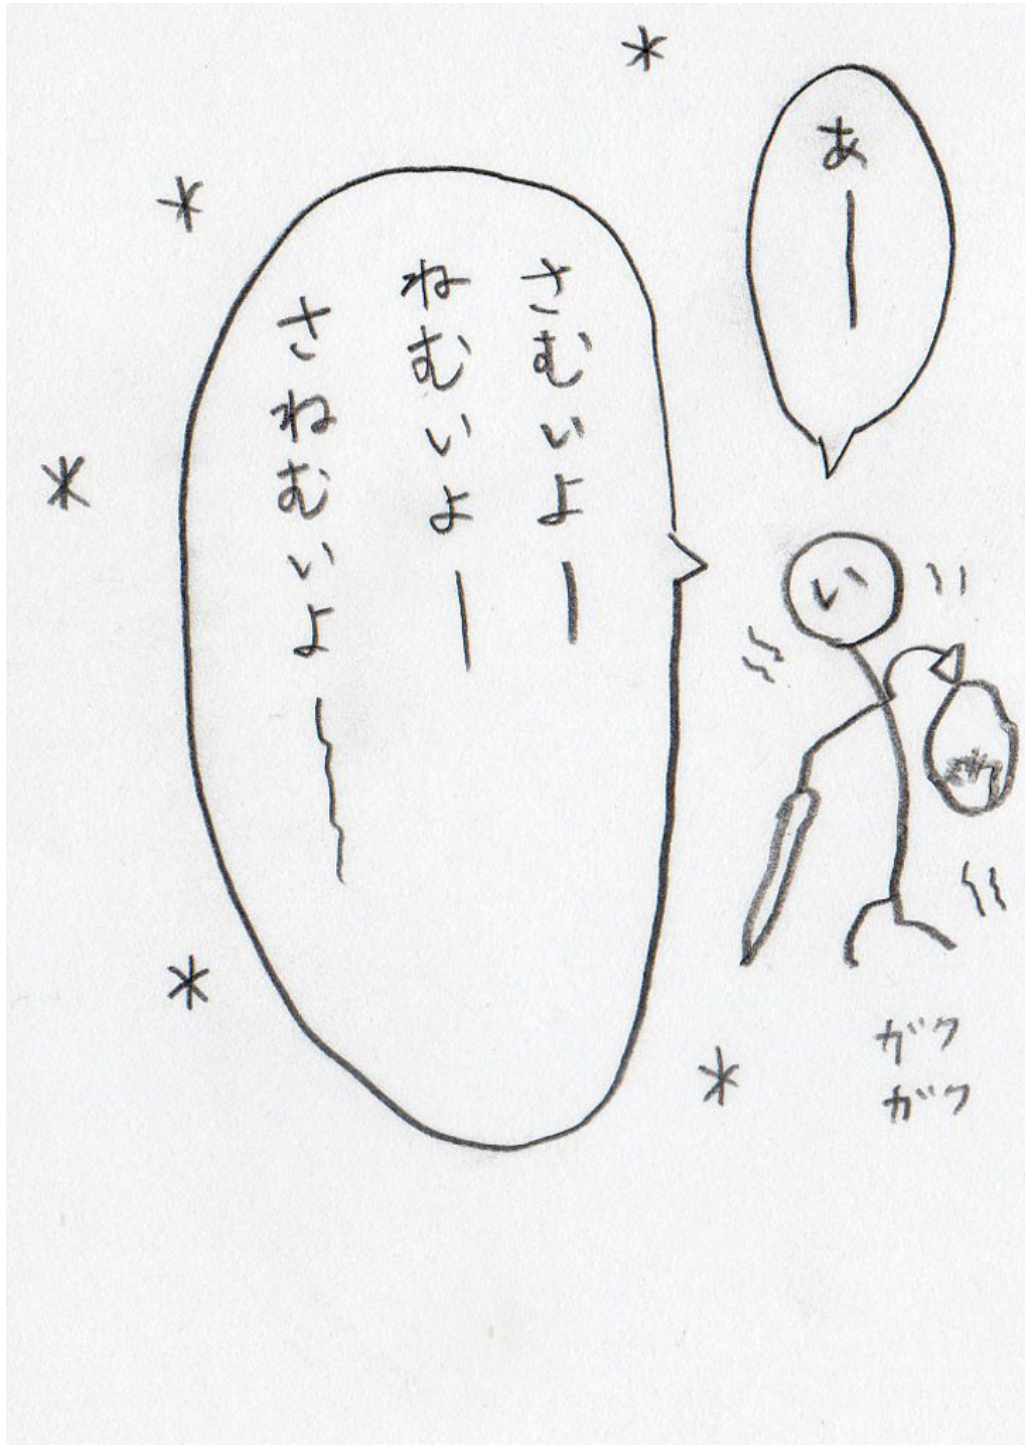 あー
さむいよー
ねむいよー
さねむいよー
い
ガク
ガク